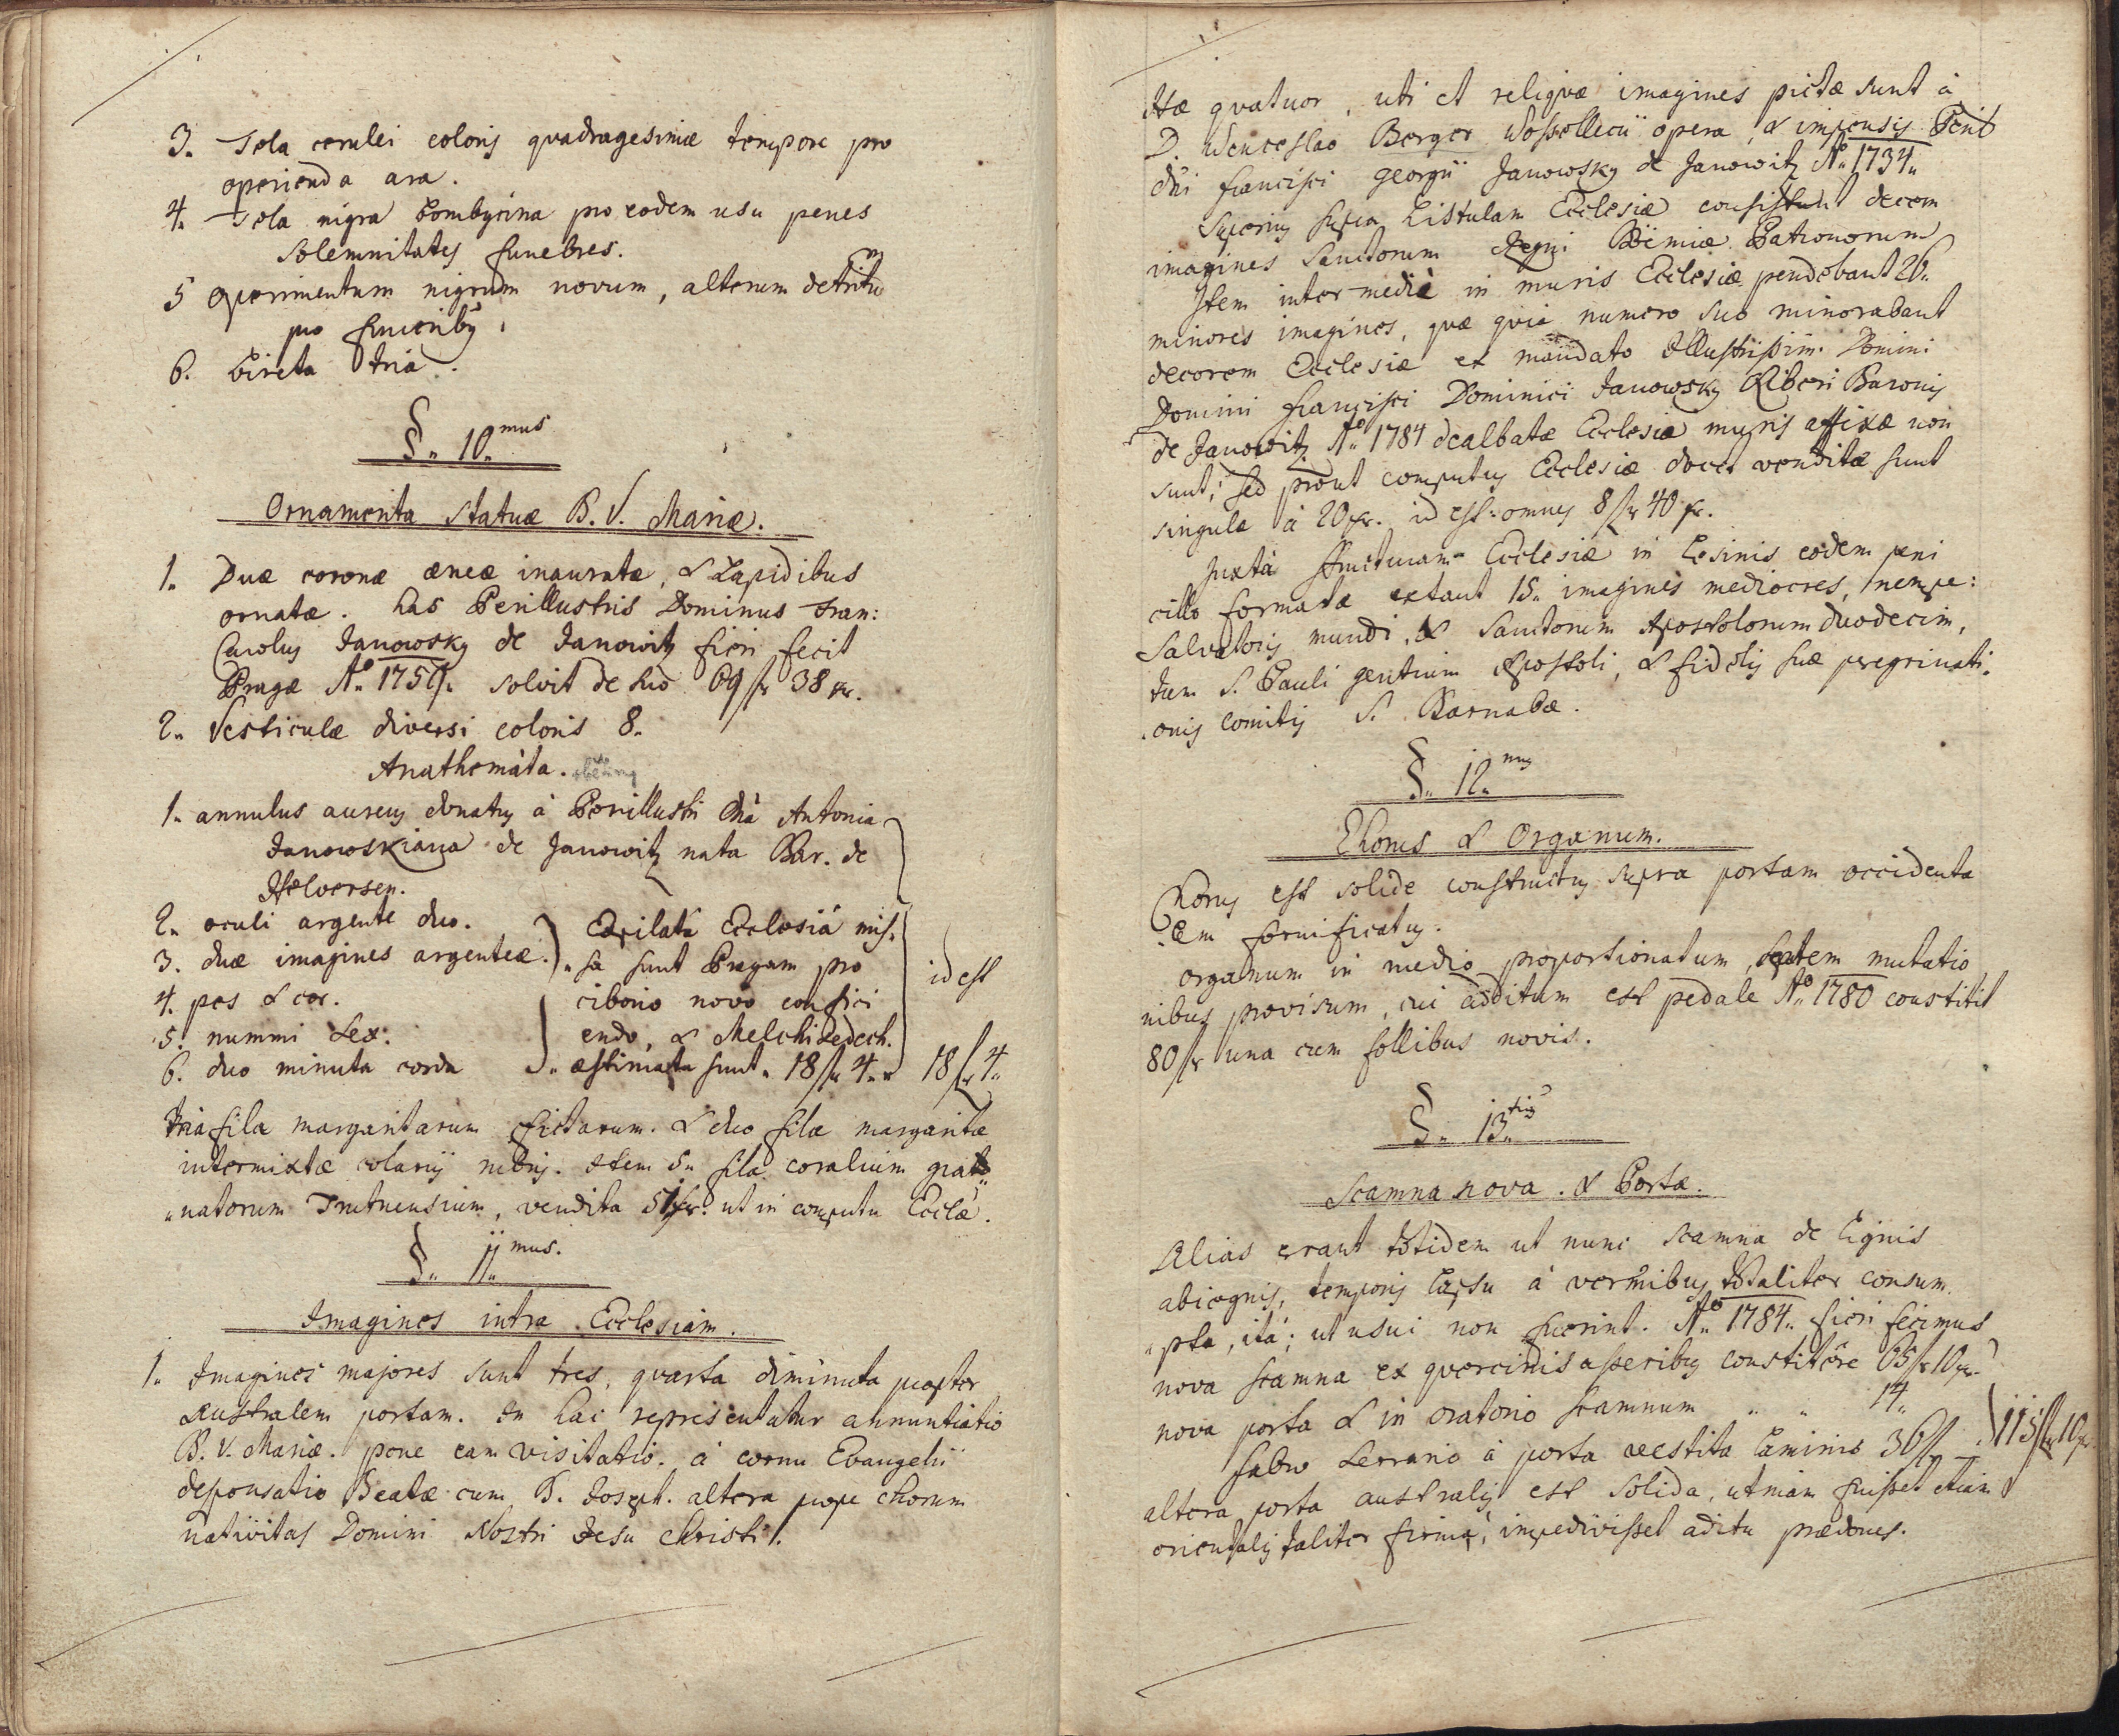 3. Tela cerulei coloris quadragesimæ tempore pro
operienda ara.
4. Tela nigra bombycina pro eodem usu penes
solemnitates funebres.
5 operimentum nigrum novum, alterum detritum
pro funeribus.
6. bireta tria.
§. 10.mus
Ornamenta statuæ B. V. Mariæ.
1. Duæ coronæ æneæ inauratæ, & Lapidibus
ornatæ. has Perillustris Dominus Fran:
Carolus Janowsky de Janowitz fieri fecit
Pragæ Ao. solvit de suo 69 fr 38 xr.
2. Vesticulæ diversi coloris 8.
Anathemata.
1. annulus aureus donatus à Perillustri Dnà Antonia
Janowskiana de Janowitz nata Bar. de
Helversen.
2. oculi argentei duo. Expilatà Ecclesià mis-
3. duæ imagines argenteæ. sa sunt Pragam pro
4. pes & cor. ciborio novo confici id est
5. nummi sex. endo, & Melchisedech.
6. duo minuta corda æstimata sunt 18 fr 4. x 18 fr 4.
tria fila margaritarum fictarum. & duo fila margaritæ
intermixtæ rubris. Item 5. fila coralium
natorum, vendita 51 xr. ut in computu Eccłæ.
§. 11mus.
Imagines intra Ecclesiam.
1. Imagines majores sunt tres, quarta diminuta propter
Australem portam. In hac representatur annuntiatio
B. V. Mariæ. pone eam visitatio. à cornu Evangelii
desponsatio Beatæ cum B. Joseph. altera prope chorum
nativitas Domini Nostri Jesu Christi.
Hæ quatuor, uti et reliquæ imagines pictæ sunt à
D. Wenceslao Berger opera, & impensis Perill
dñi Francisci Georgii Janowsky de Janowitz Ao. 1734.
Superius supra Listulam Ecclesiæ consistunt decem
imagines Sanctorum Regni Böemiæ Patronorum
Item intermediè in muris Ecclesiæ pendebant 26.
minores imagines, quæ quia numero suo minorabant
decorem Ecclesiæ ex mandato Illustrissimi Domini
Domini Francisci Dominici Janowsky Liberi Baronis
de Janowitz Ao. 1784 dealbatæ Ecclesiæ muris affixæ non
sunt; sed prout computus Ecclesiæ docet venditæ sunt
singulæ à 20 xr. id est omnes 8 fr 40 xr.
juxta structuram Ecclesiæ in Lesinis eodem peni
cillo formatæ extant 15. imagines mediocres, nempe:
Salvatoris mundi, & Sanctorum Apostolorum duodecim,
tum S. Pauli gentium Apostoli, & fidelis suæ peregrinati-
onis comitis S. Barnabæ.
§. 12.mus
Chorus & Organum.
Chorus est solide constructus supra portam occidenta
lem fornificatus.
organum in medio proportionatum, septem mutatio
nibus provisum, cui additum est pedale Ao. 1780 constitit
80 fr una cum follibus novis.
§. 13.tius
Scamna nova. & Portæ.
Alias erant totidem ut nunc scamna de Lignis
abiegnis, temporis lapsu à vermibus totaliter consum-
pta, ita; ut usui non fuerint. Ao. 1784. fieri fecimus
nova scamna ex quercinis asseribus constitêre 65 fr 10 xr
nova porta & in oratorio scamnum " " 14.
fabro serrario à porta vestita laminis 36 fr 115 fr 10 xr
altera porta australis est solida, utinam fuisset etiam
orientalis taliter firma, impedivisset aditu prædones.